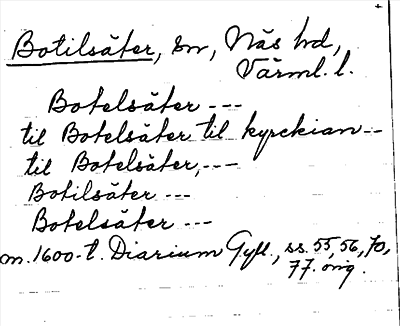 Botilsäter, sn, Näs hd,
Värml. l.
Botelsäter ---
til Botelsäter til kyrckian --
til Botelsäter, ---
Botilsäter ---
Botelsäter ---
m. 1600-t. Diarium Gyll., ss. 55, 56, 70,
77. orig.